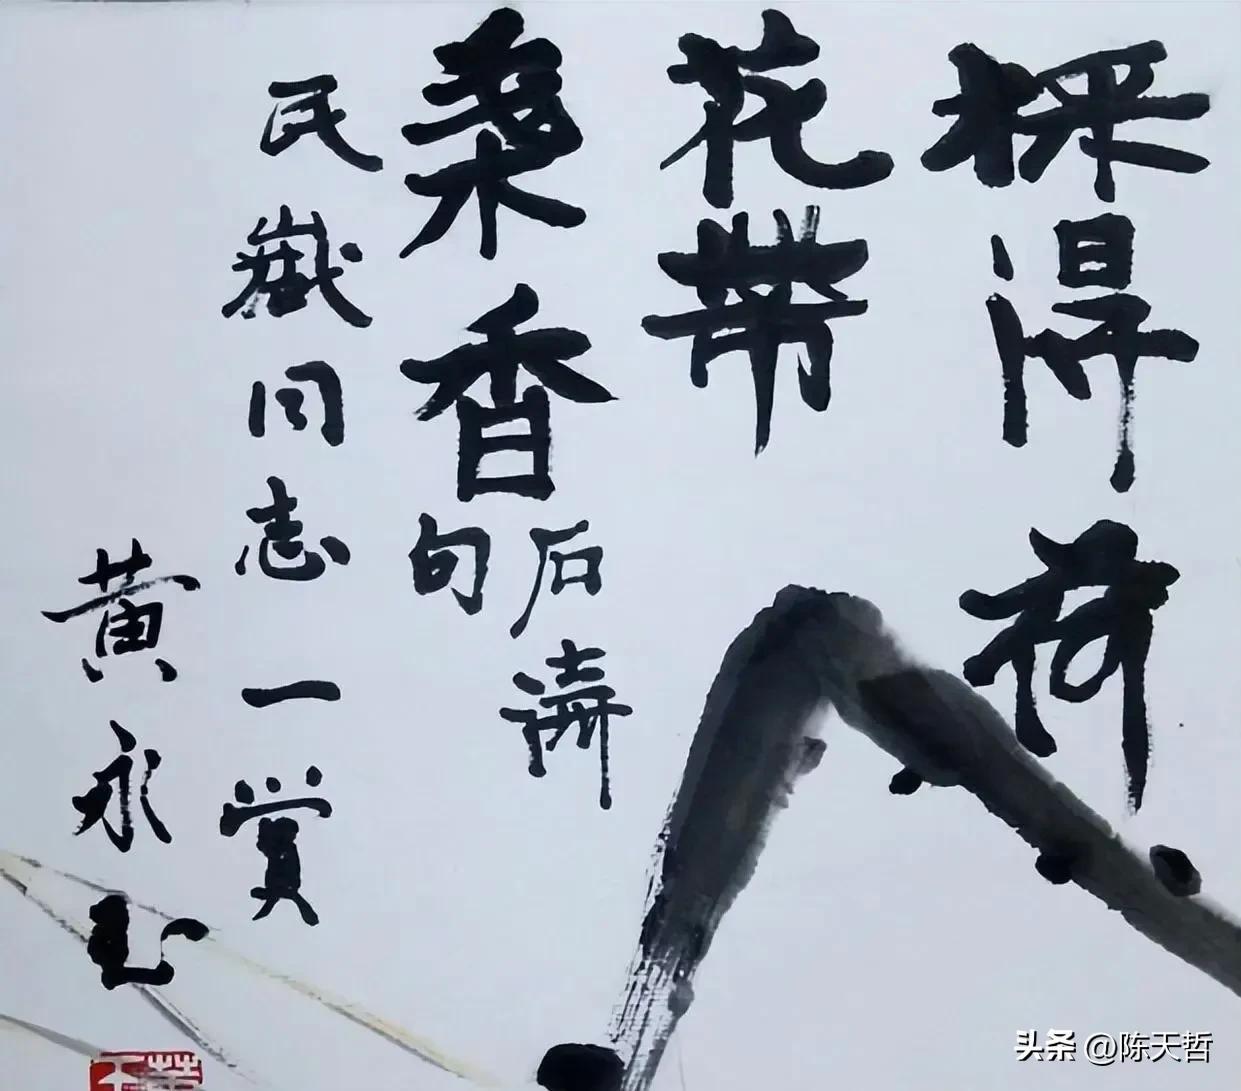 採得荷
花帶
葉香
石濤
句
民同志一賞
黄永玉
头条 @陈天哲